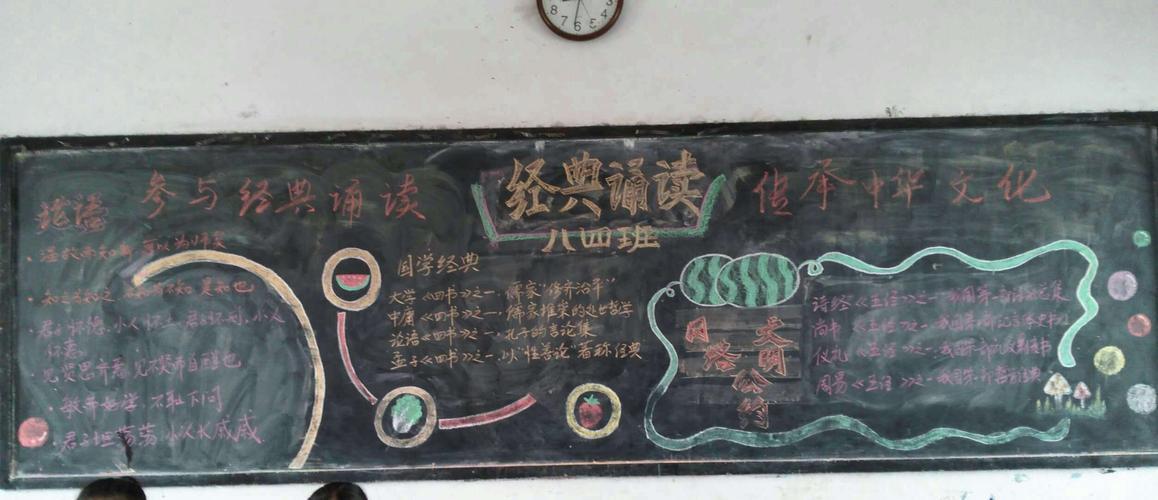 参与经典诵读
经典诵读
传承中华文化
八四班
论语
·温故而知新 可以为师矣
·知之为知之 不知为不知 是知也
·君子怀德,小人怀土,君子怀刑,小人
怀惠
·见贤思齐焉,见不贤而自省也
·敏而好学,不耻下问
·君子坦荡荡,小人长戚戚
国学经典
大学《四书》之一,儒家"修齐治平"
中庸《四书》之一,儒家推崇的处世哲学
论语《四书》之一,孔子的言论集
孟子《四书》之一,以"性善论"著称经典
网络
文明公约
诗经《五经》之一
尚书《五经》之一
仪礼《五经》之一
周易《五经》之一
8 7 6 5 4 3